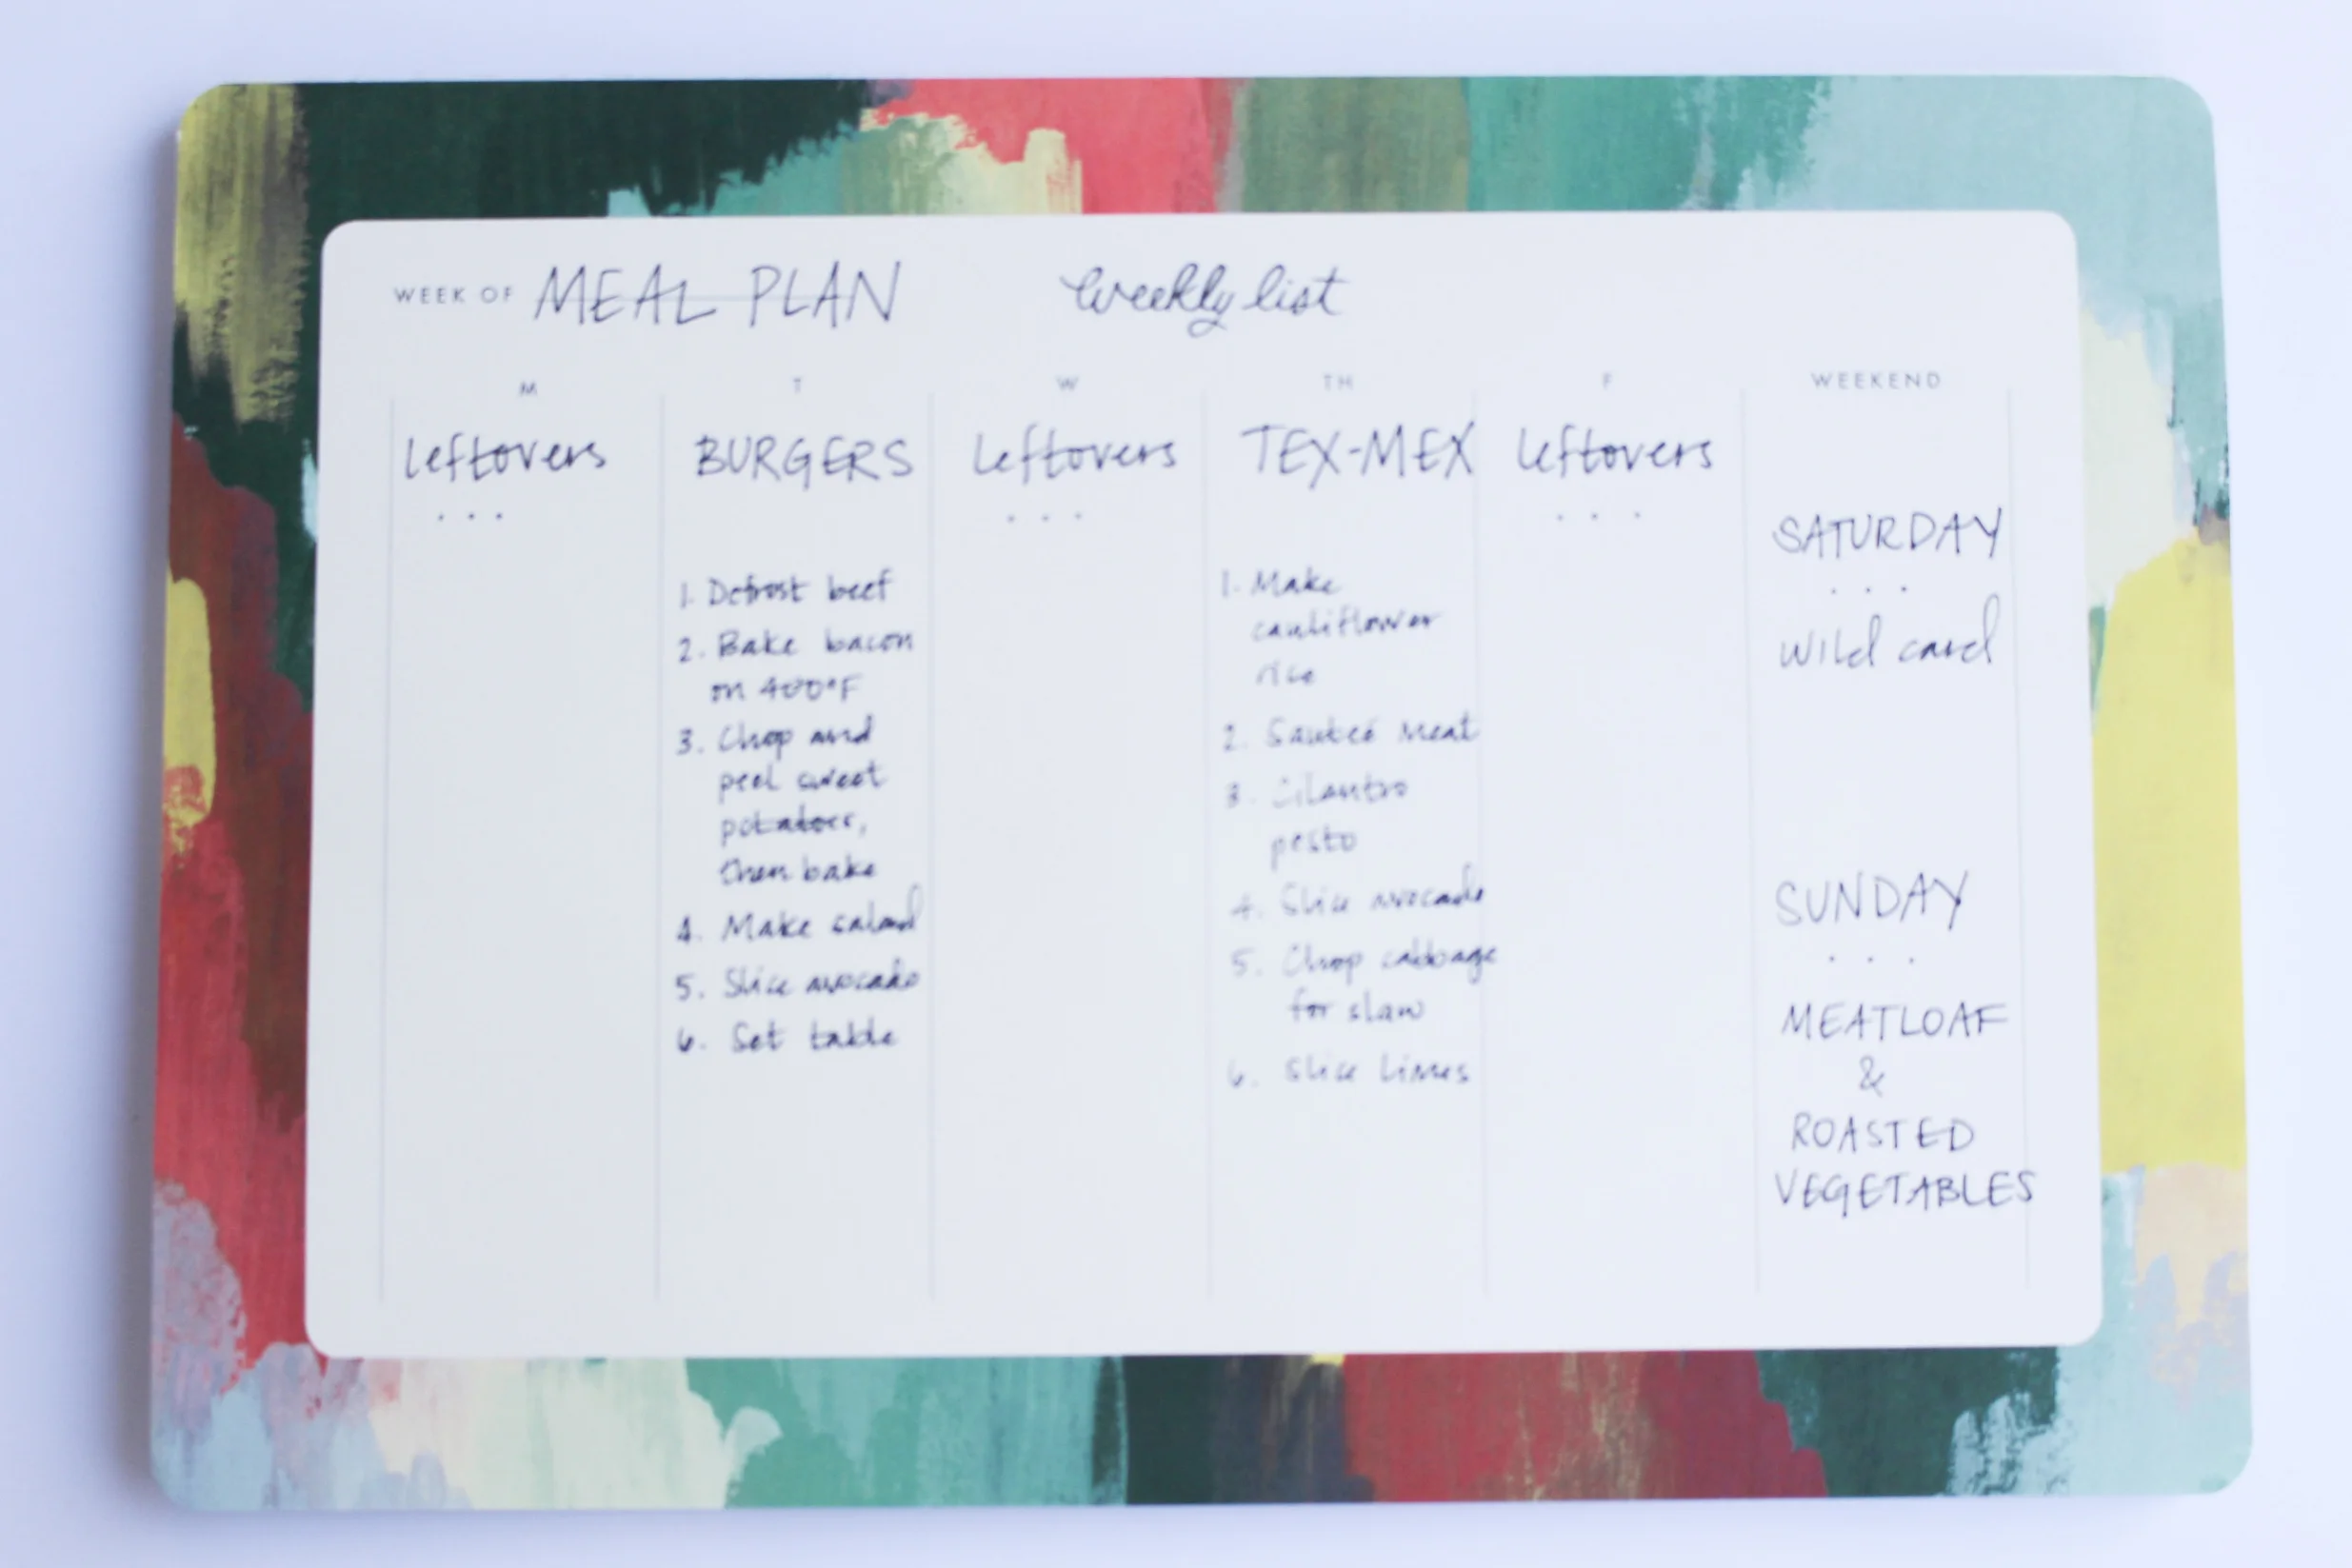 WEEK OF MEAL PLAN weekly list
M
leftovers
. . .
T
BURGERS
1. Defrost beef
2. Bake bacon
on 400°F
3. Chop and
peel sweet
potatoes,
then bake
4. Make salad
5. Slice avocado
6. Set table
W
leftovers
. . .
TH
TEX-MEX
1. Make
cauliflower
rice
2. Sauteé meat
3. Cilantro
pesto
4. Slice avocado
5. Chop cabbage
for slaw
6. Slice limes
F
leftovers
. . .
WEEKEND
SATURDAY
. . .
wild card
SUNDAY
. . .
MEATLOAF
&
ROASTED
VEGETABLES